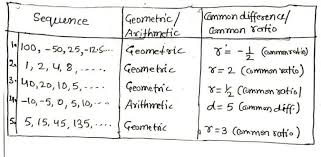 Sequence Geometric/ Arithmetic Common difference/ Common ratio
1. 100, -50, 25, -12.5... Geometric r = -1/2 (common ratio)
2. 1, 2, 4, 8, .... Geometric r = 2 (common ratio)
3. 40, 20, 10, 5, .... Geometric r = 1/2 (common ratio)
4. -10, -5, 0, 5, 10, .... Arithmetic d = 5 (common diff)
5. 5, 15, 45, 135, .... Geometric r = 3 (common ratio)